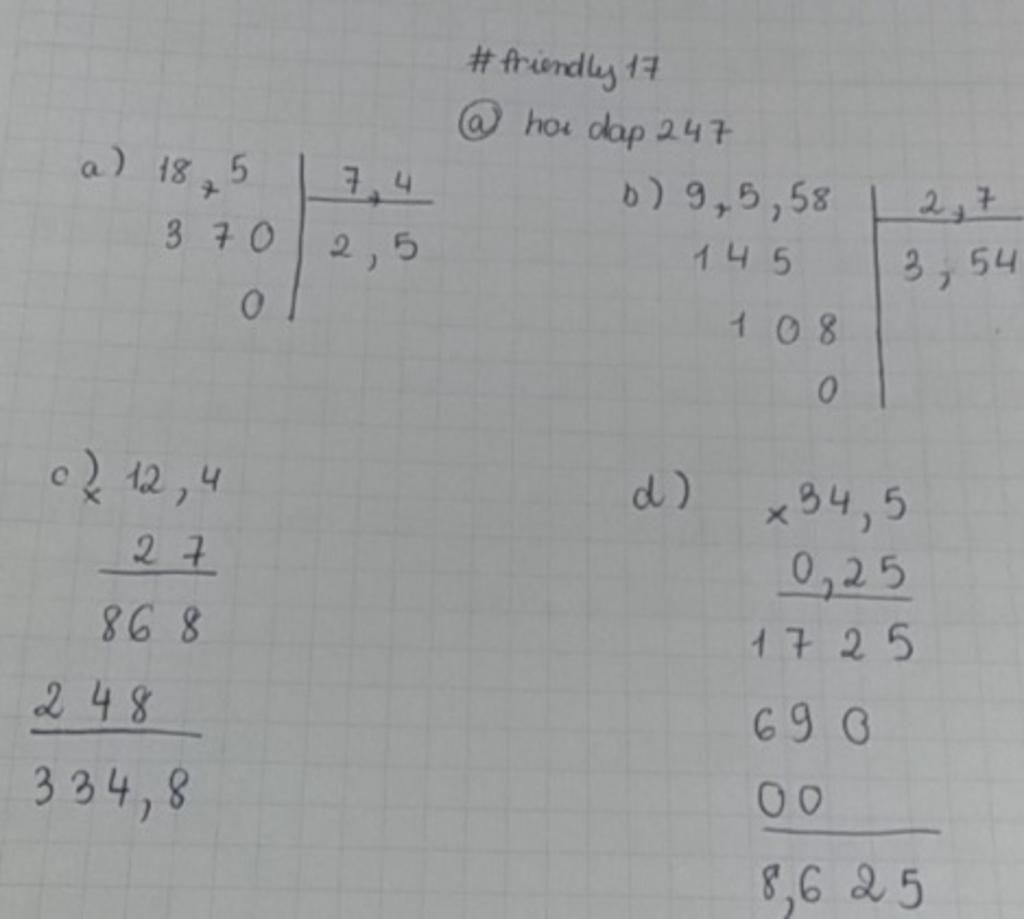 #friendly17
@ hoi dap 247
a) 18,5 7,4
3 7 0 2,5
0
b) 9,5,58 2,7
1 4 5 3,54
1 0 8
0
c) x 12,4
2 7
86 8
2 4 8
334,8
d) x 34,5
0,25
1 7 2 5
6 9 0
0 0
8,6 2 5